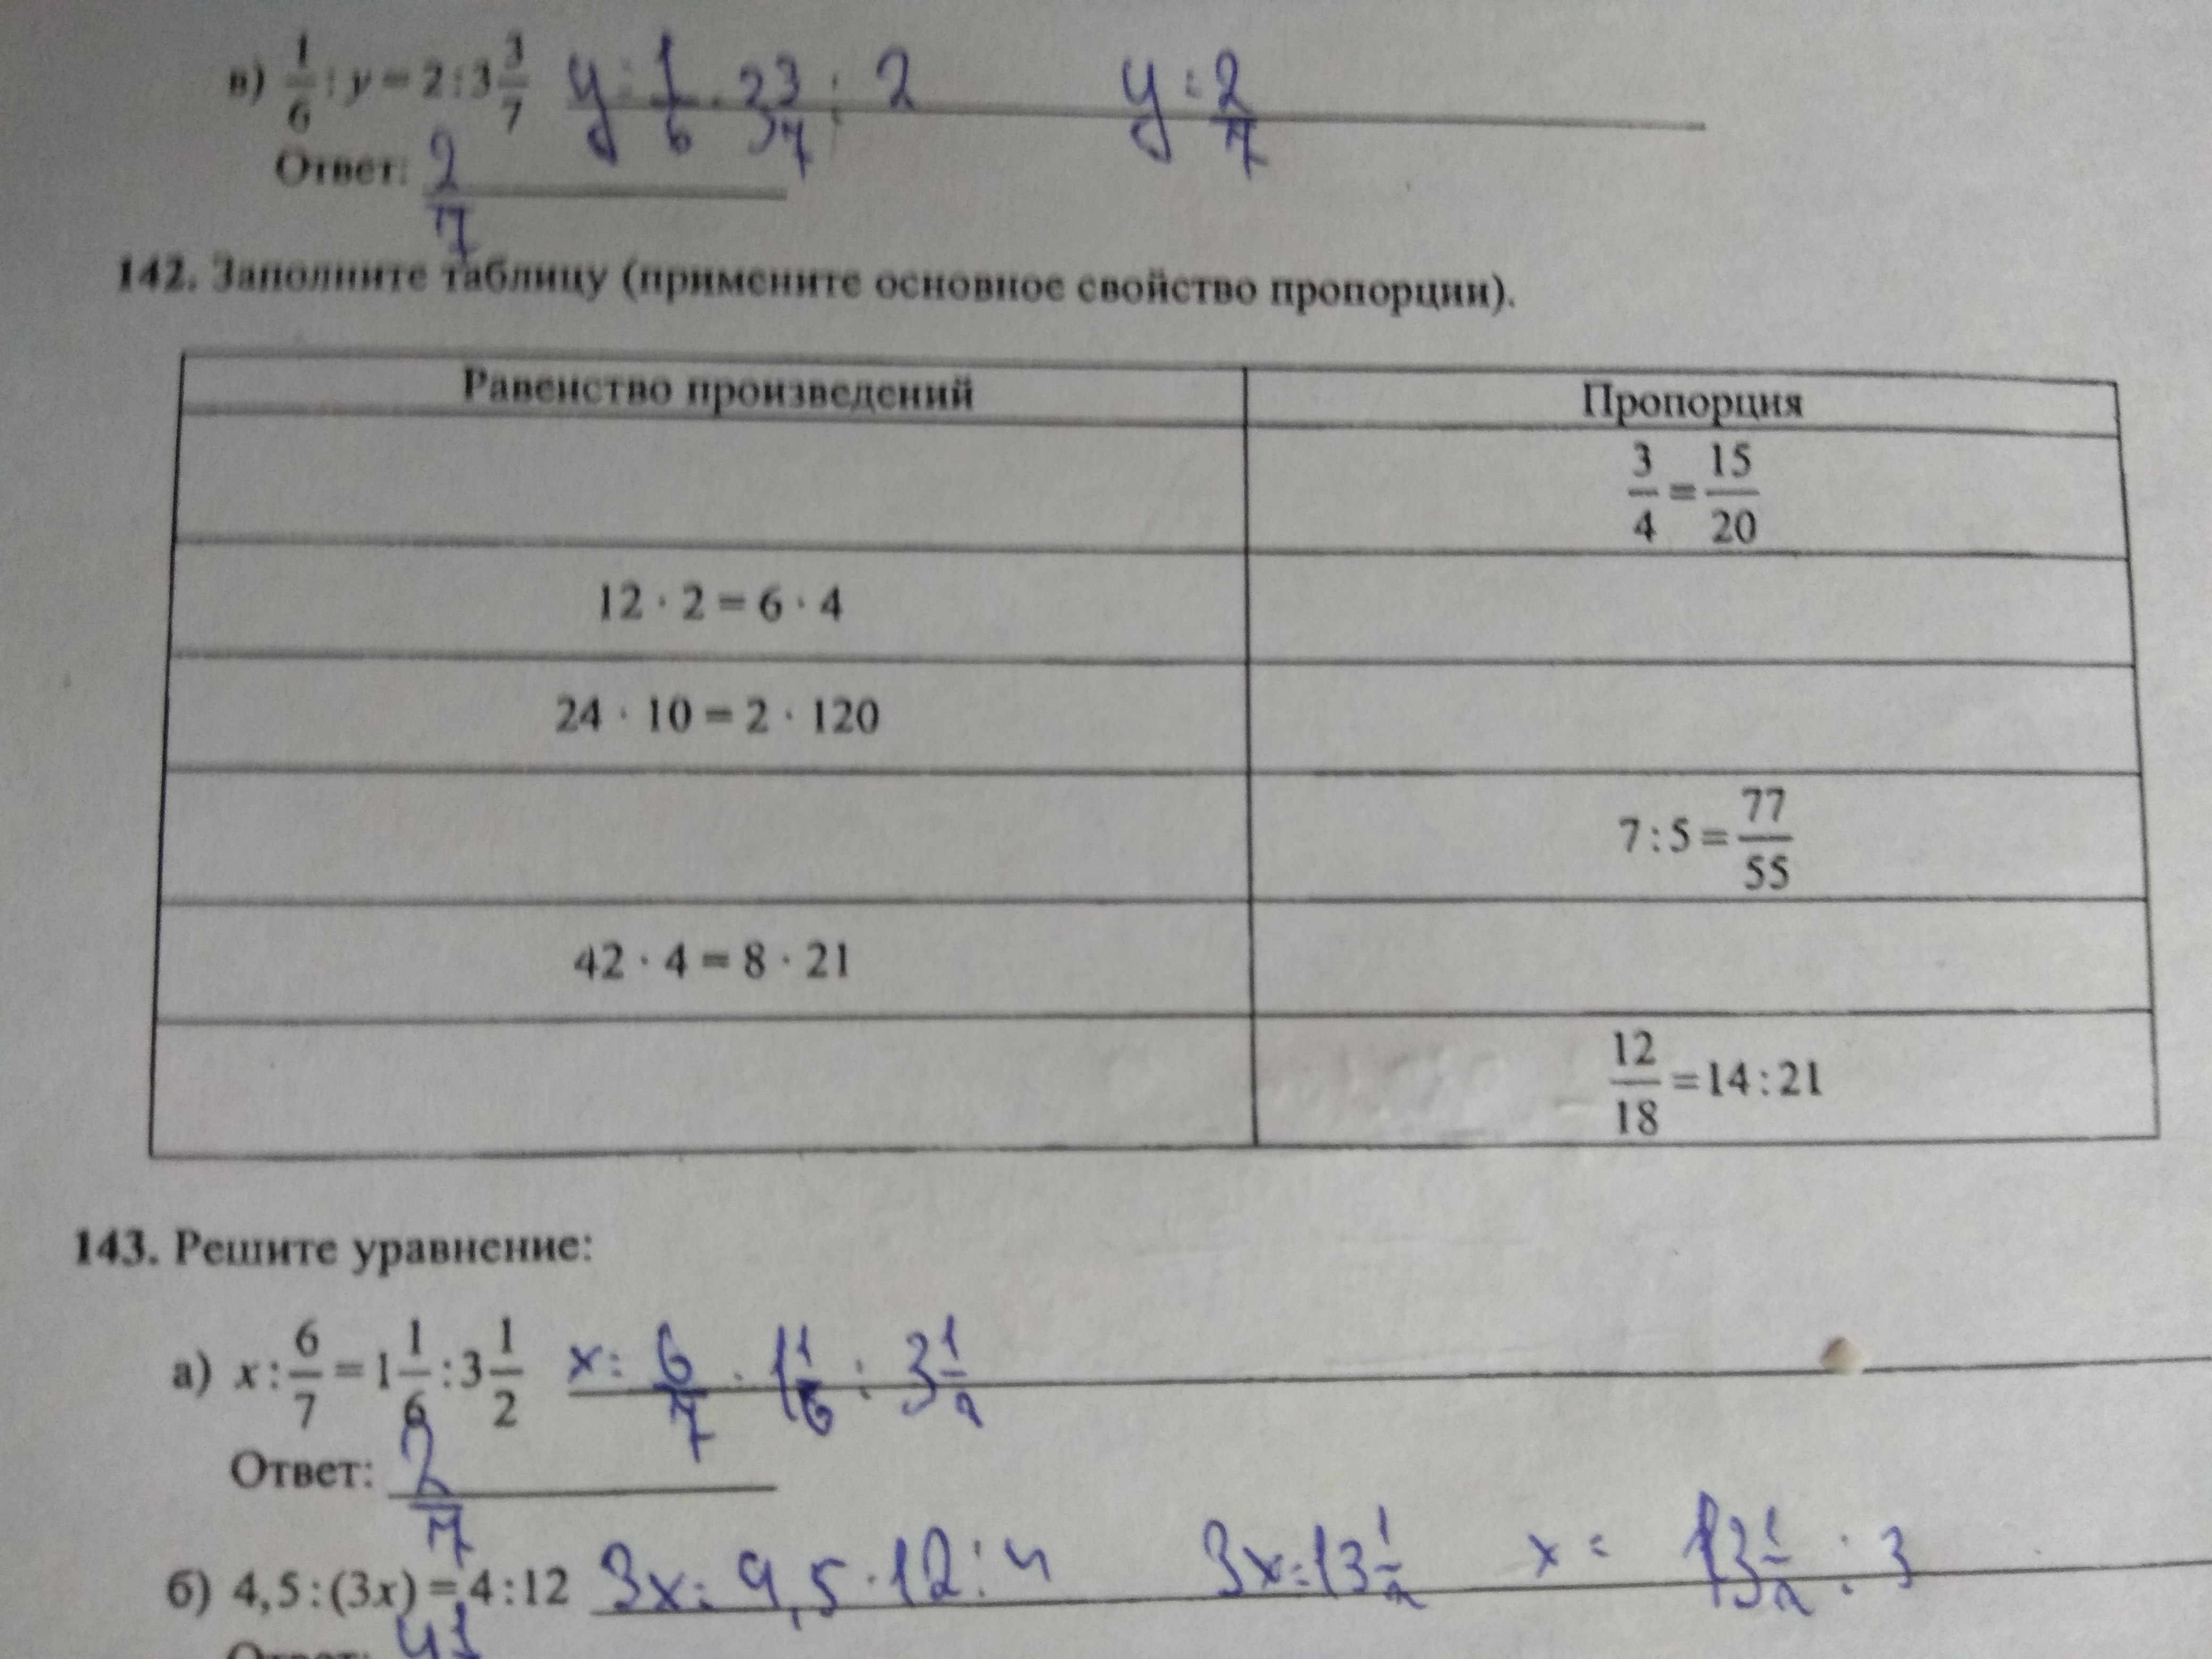 в) 1/6 : y = 2 : 3 3/7 y = 1/6 · 3 3/7 : 2 y = 2/7
Ответ: 2/7
142. Заполните таблицу (примените основное свойство пропорции).
Равенство произведений Пропорция
3/4 = 15/20
12 · 2 = 6 · 4
24 · 10 = 2 · 120
7 : 5 = 77/55
42 · 4 = 8 · 21
12/18 = 14 : 21
143. Решите уравнение:
а) x : 6/7 = 1 1/6 : 3 1/2 x = 6/7 · 1 1/6 : 3 1/2
Ответ: 2/7
б) 4,5 : (3x) = 4 : 12 3x = 4,5 · 12 : 4 3x = 13 1/2 x = 13 1/2 : 3
Ответ: 4 1